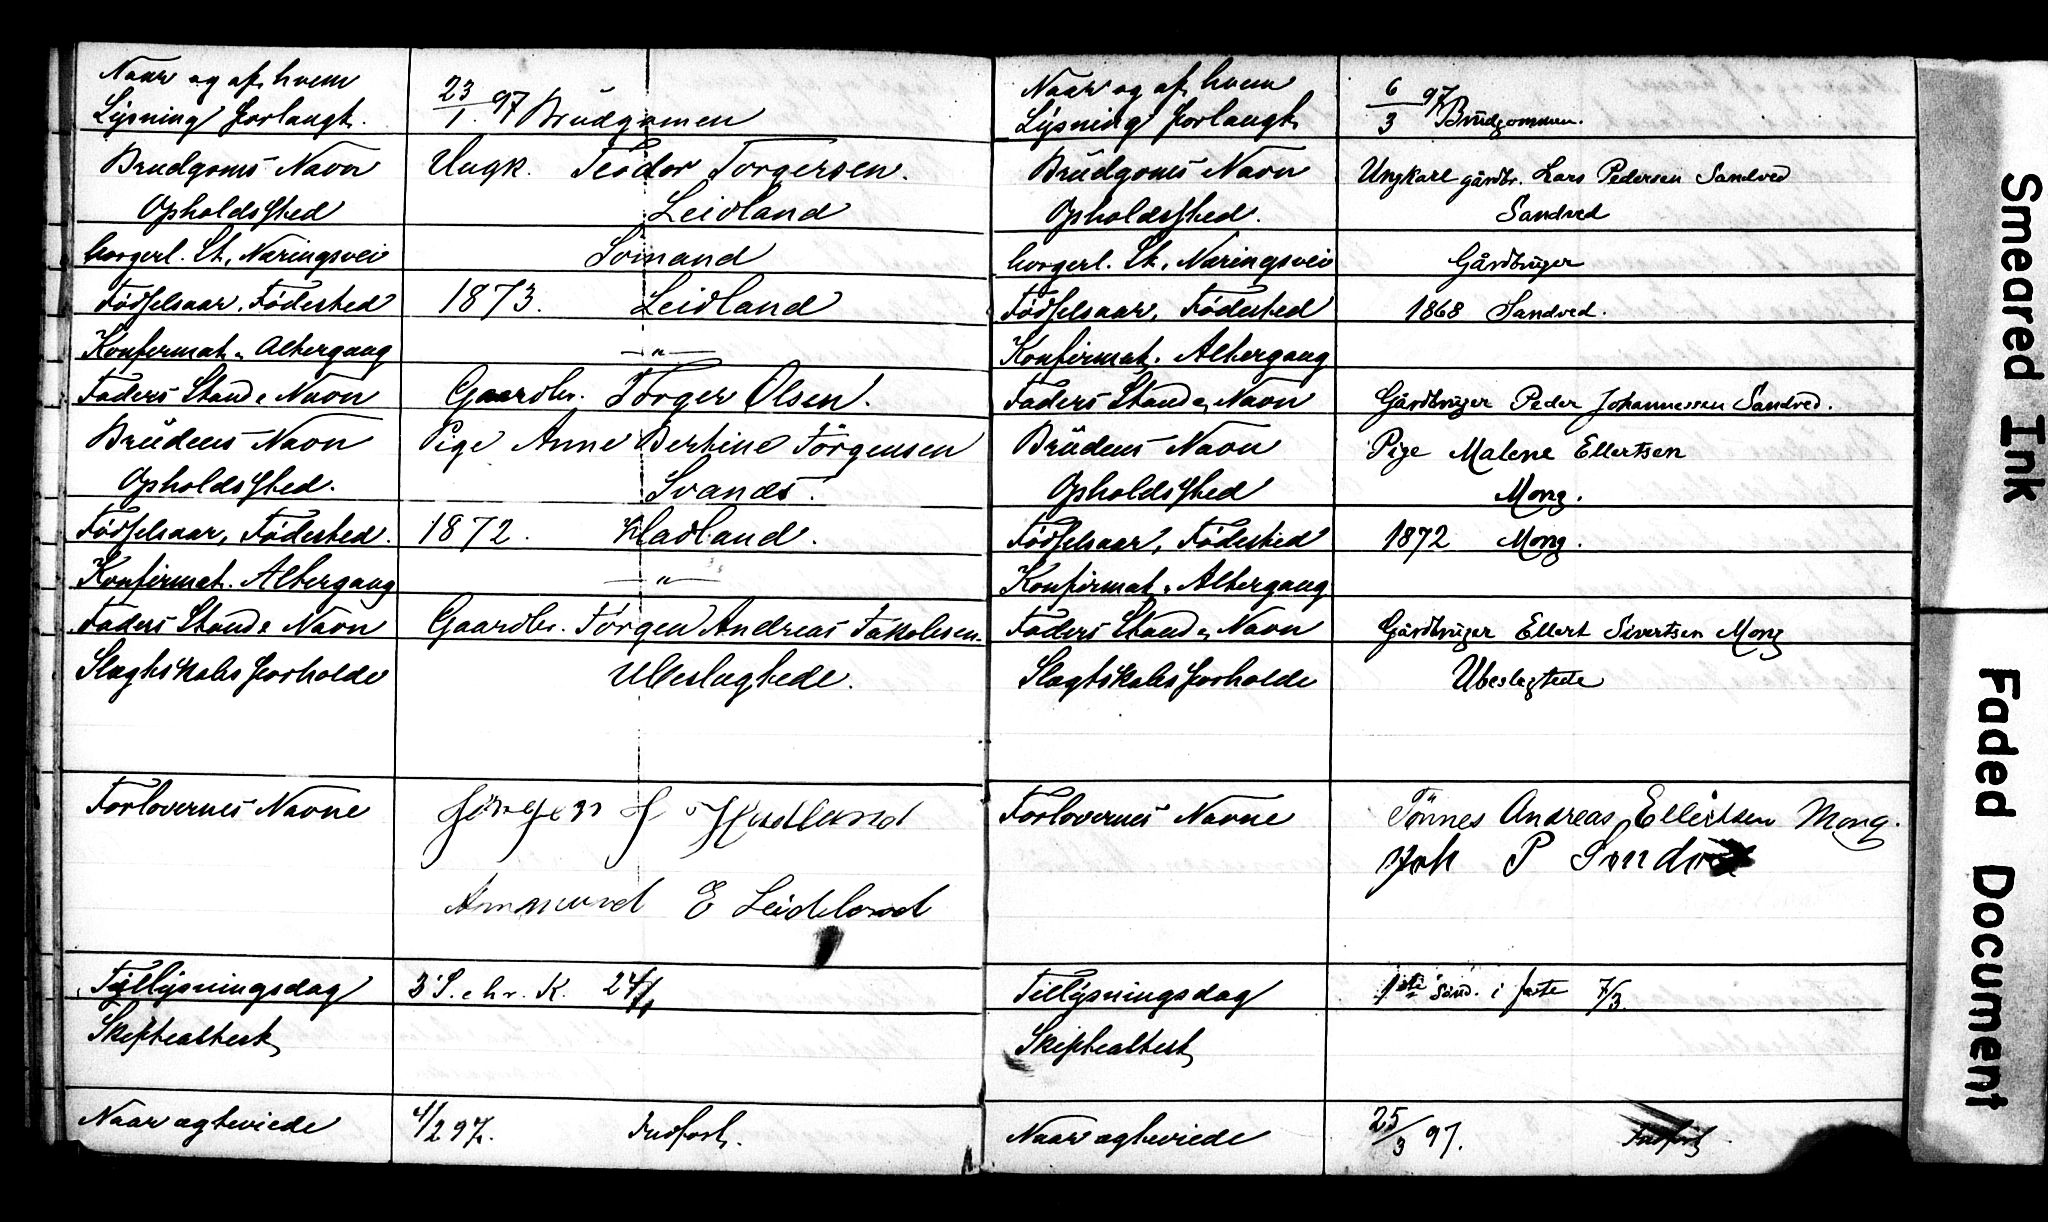 Naar og af hvem
Lysning forlangt. 23/1 97 Brudgomen
Brudgoms Navn Ungk. Teodor Torgersen.
Opholdssted Leidland
borgerl. St, Næringsvei Sømand
Fødselsaar, Fødested 1873. Leidland
Konfirmat, Altergang —"—
Faders Stand & Navn Gaardbr. Torger Olsen.
Brudens Navn Pige Anne Bertine Jørgensen
Opholdssted. Svanes.
Fødselsaar, Fødested. 1872. Hadland.
Konfirmat. Altergang —"—
Faders Stand & Navn Gaardbr. Jørgen Andreas Jakobsen.
Slagtskabsforholde Ubeslagtede.
Forlovernes Navne Jørgen J Hadland
Ammund E Leidland
Tillysningsdag 3 S. e hr. K. 24/1
Skifteattest
Naar ægteviede 4/2 97. Indført.
Naar og af hvem
Lysning forlangt 6/3 97 Brudgommen.
Brudgoms Navn Ungkarl gårdbr. Lars Pedersen Sandved
Opholdssted. Sandved
borgerl. St, Næringsvei Gårdbruger
Fødselsaar, Fødested 1868 Sandved.
Konfirmat, Altergang
Faders Stand & Navn Gårdbruger Peder Johannessen Sandved.
Brudens Navn Pige Malene Ellertsen
Opholdssted Mong.
Fødselsaar, Fødested 1872 Mong.
Konfirmat, Altergang
Faders Stand & Navn Gårdbruger Ellert Sivertsen Mong
Slagtskabsforholde Ubeslegtede
Forlovernes Navne Tønnes Andreas Ellertsen Mong.
Joh P Sandved
Tillysningsdag 1ste Sønd. i faste 7/3.
Skifteattest
Naar ægteviede 25/3 97. Indført
Smeared Ink
Faded Document